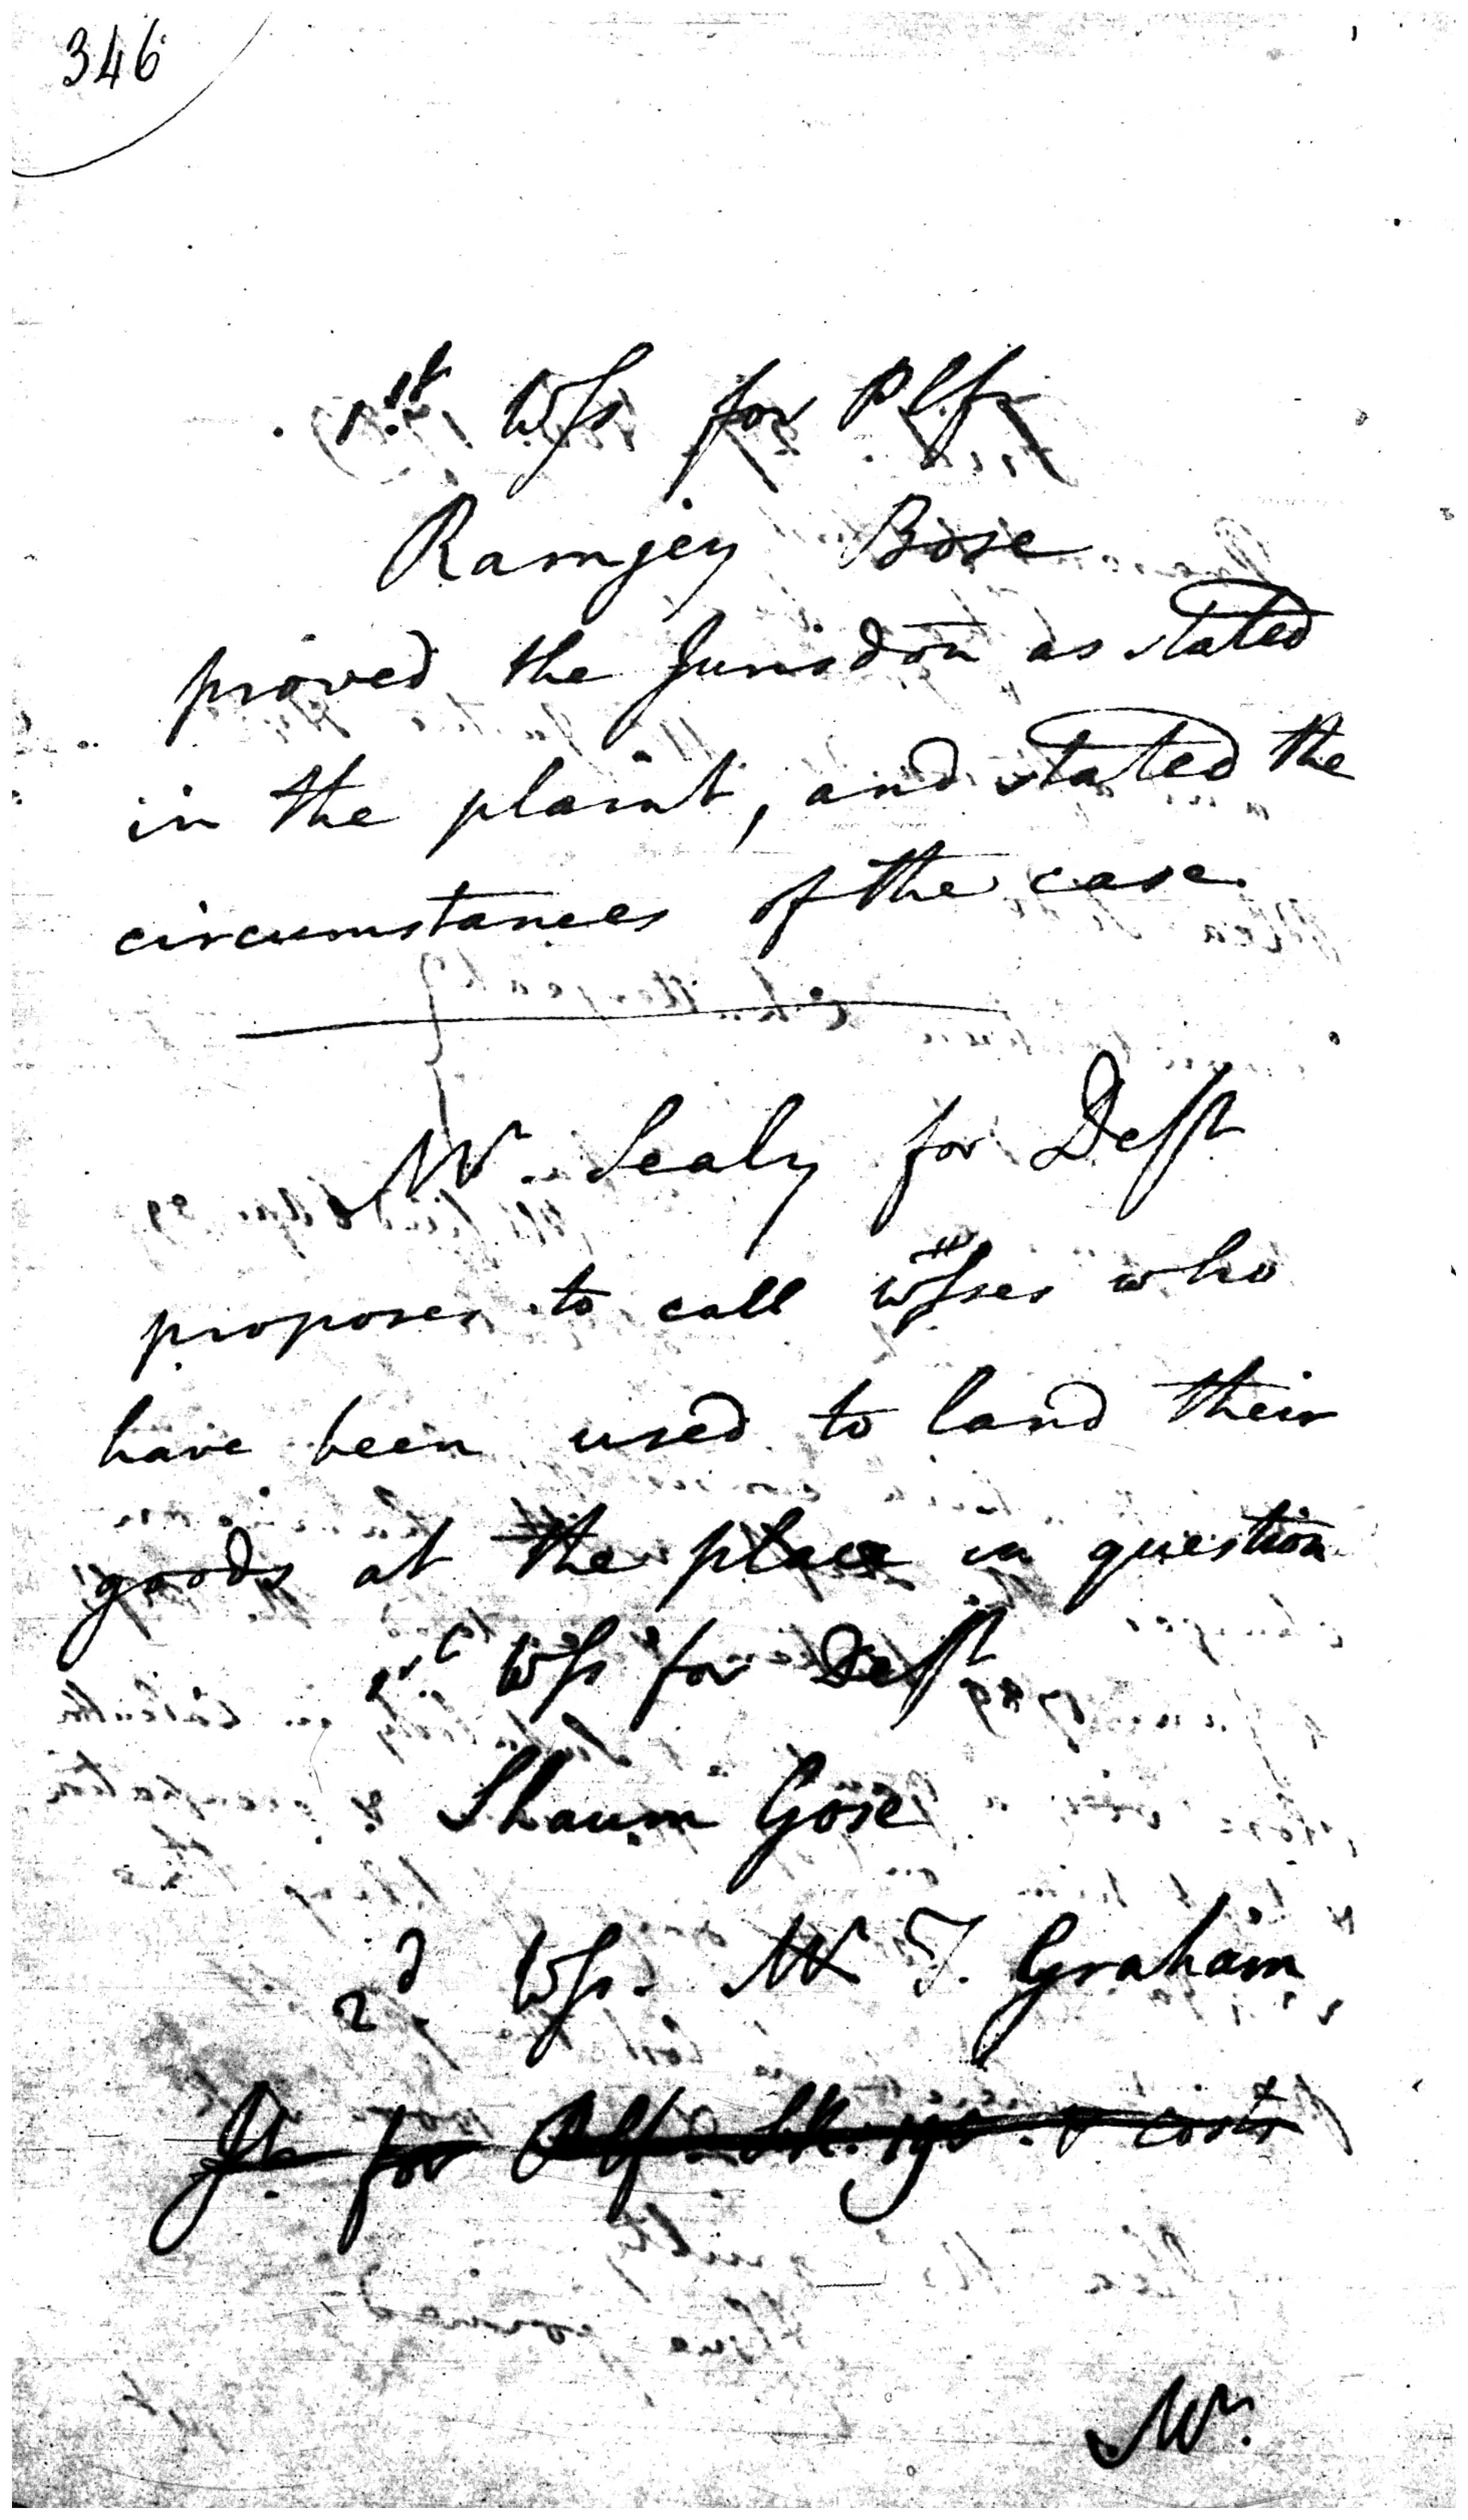 346
1st Wss for Plff
Ramjey Bose
proved the Jurisdōn as stated
in the plaint, and stated the
circumstances of the case
Mr. Sealy for Defft
proposes to call wsses who
have been used to land their
goods at the place in question
1st Wss for Defft
Shaum Gose
2d. Wss. Mr T. Graham
Jt. for Plff. & costs
Mr.